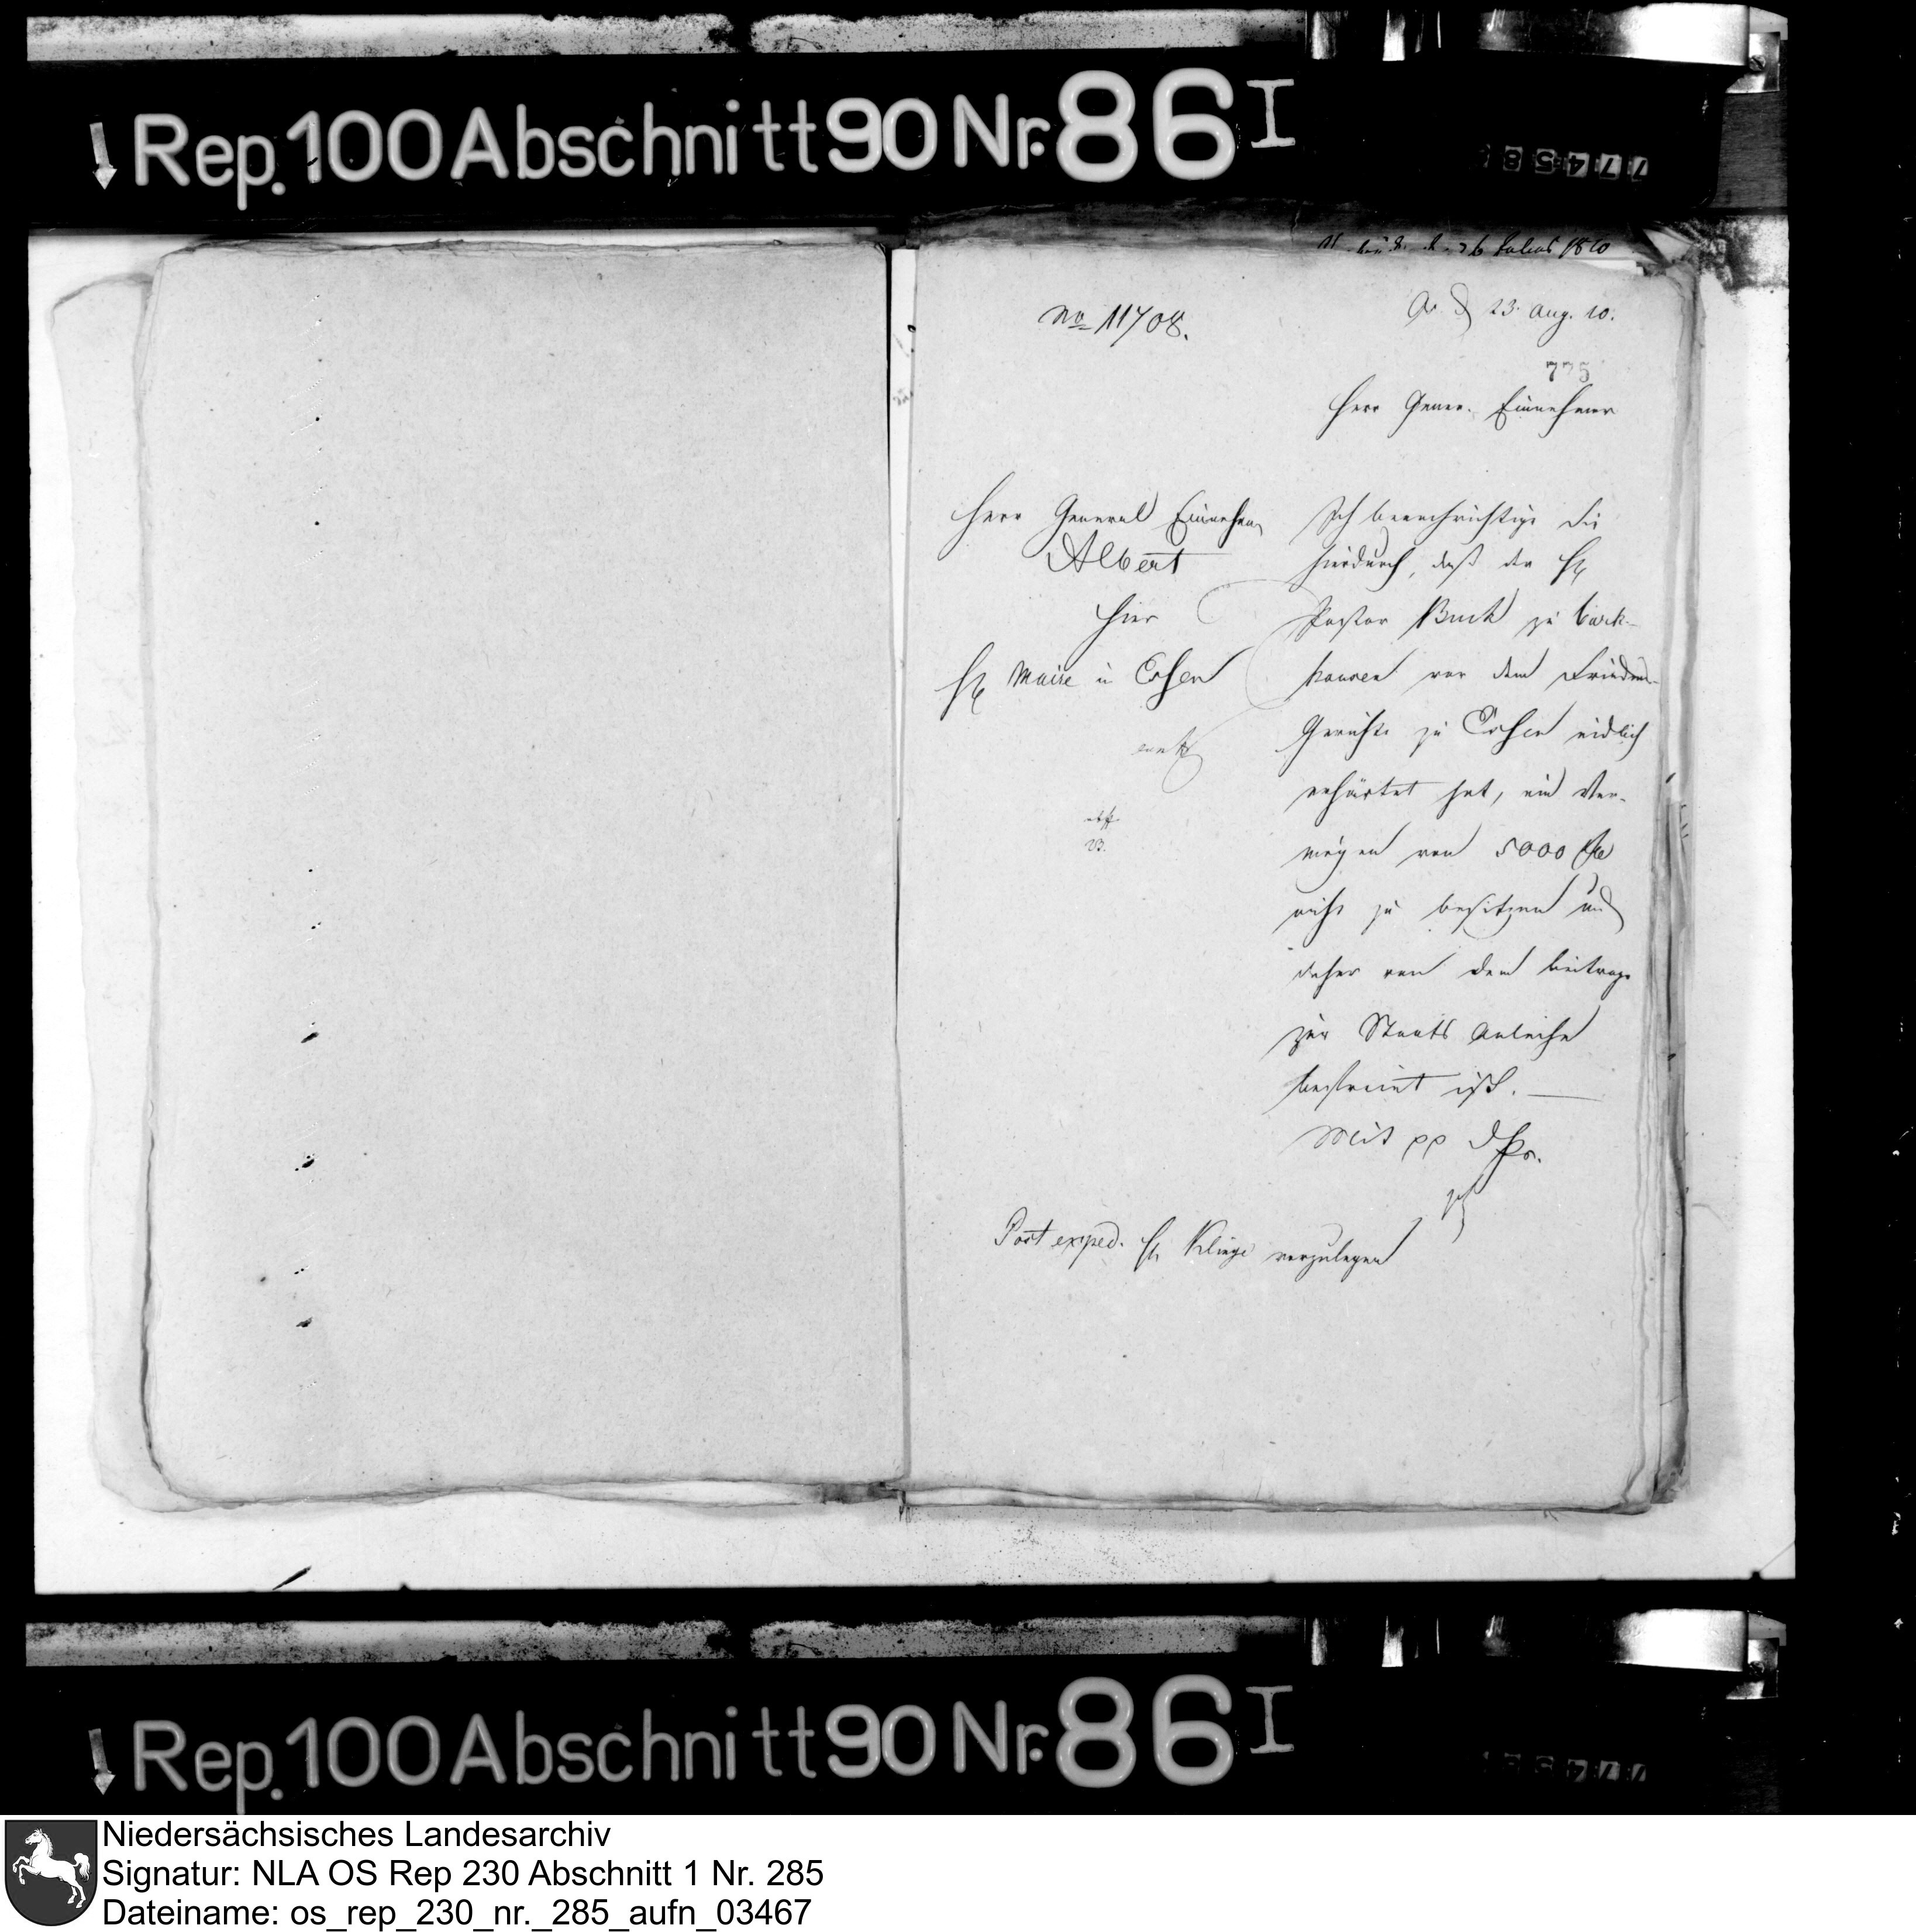 Rep. 100 Abschnitt 90 Nr. 86 I
77458
26 Julius 1810
No 11708.
23. Aug. 10.
775
Herr Gener. Einnehmer
Herr General Einnehm
Albert
hier
H Maire in Essen
Ich benachrichtige Sie
hierdurch, daß der H
Pastor Buck zu Bark-
hausen vor dem Friedens-
Gerichte zu Essen eidlich
erhärtet hat, ein Ver-
mögen von 5000
nicht zu besitzen und
daher von dem Beitrage
zur Staats Anleihe
befreiet ist. —
Mit pp
Post exped. H Klinge vorzulegen
Rep. 100 Abschnitt 90 Nr. 86 I
Niedersächsisches Landesarchiv
Signatur: NLA OS Rep 230 Abschnitt 1 Nr. 285
Dateiname: os_rep_230_nr._285_aufn_03467